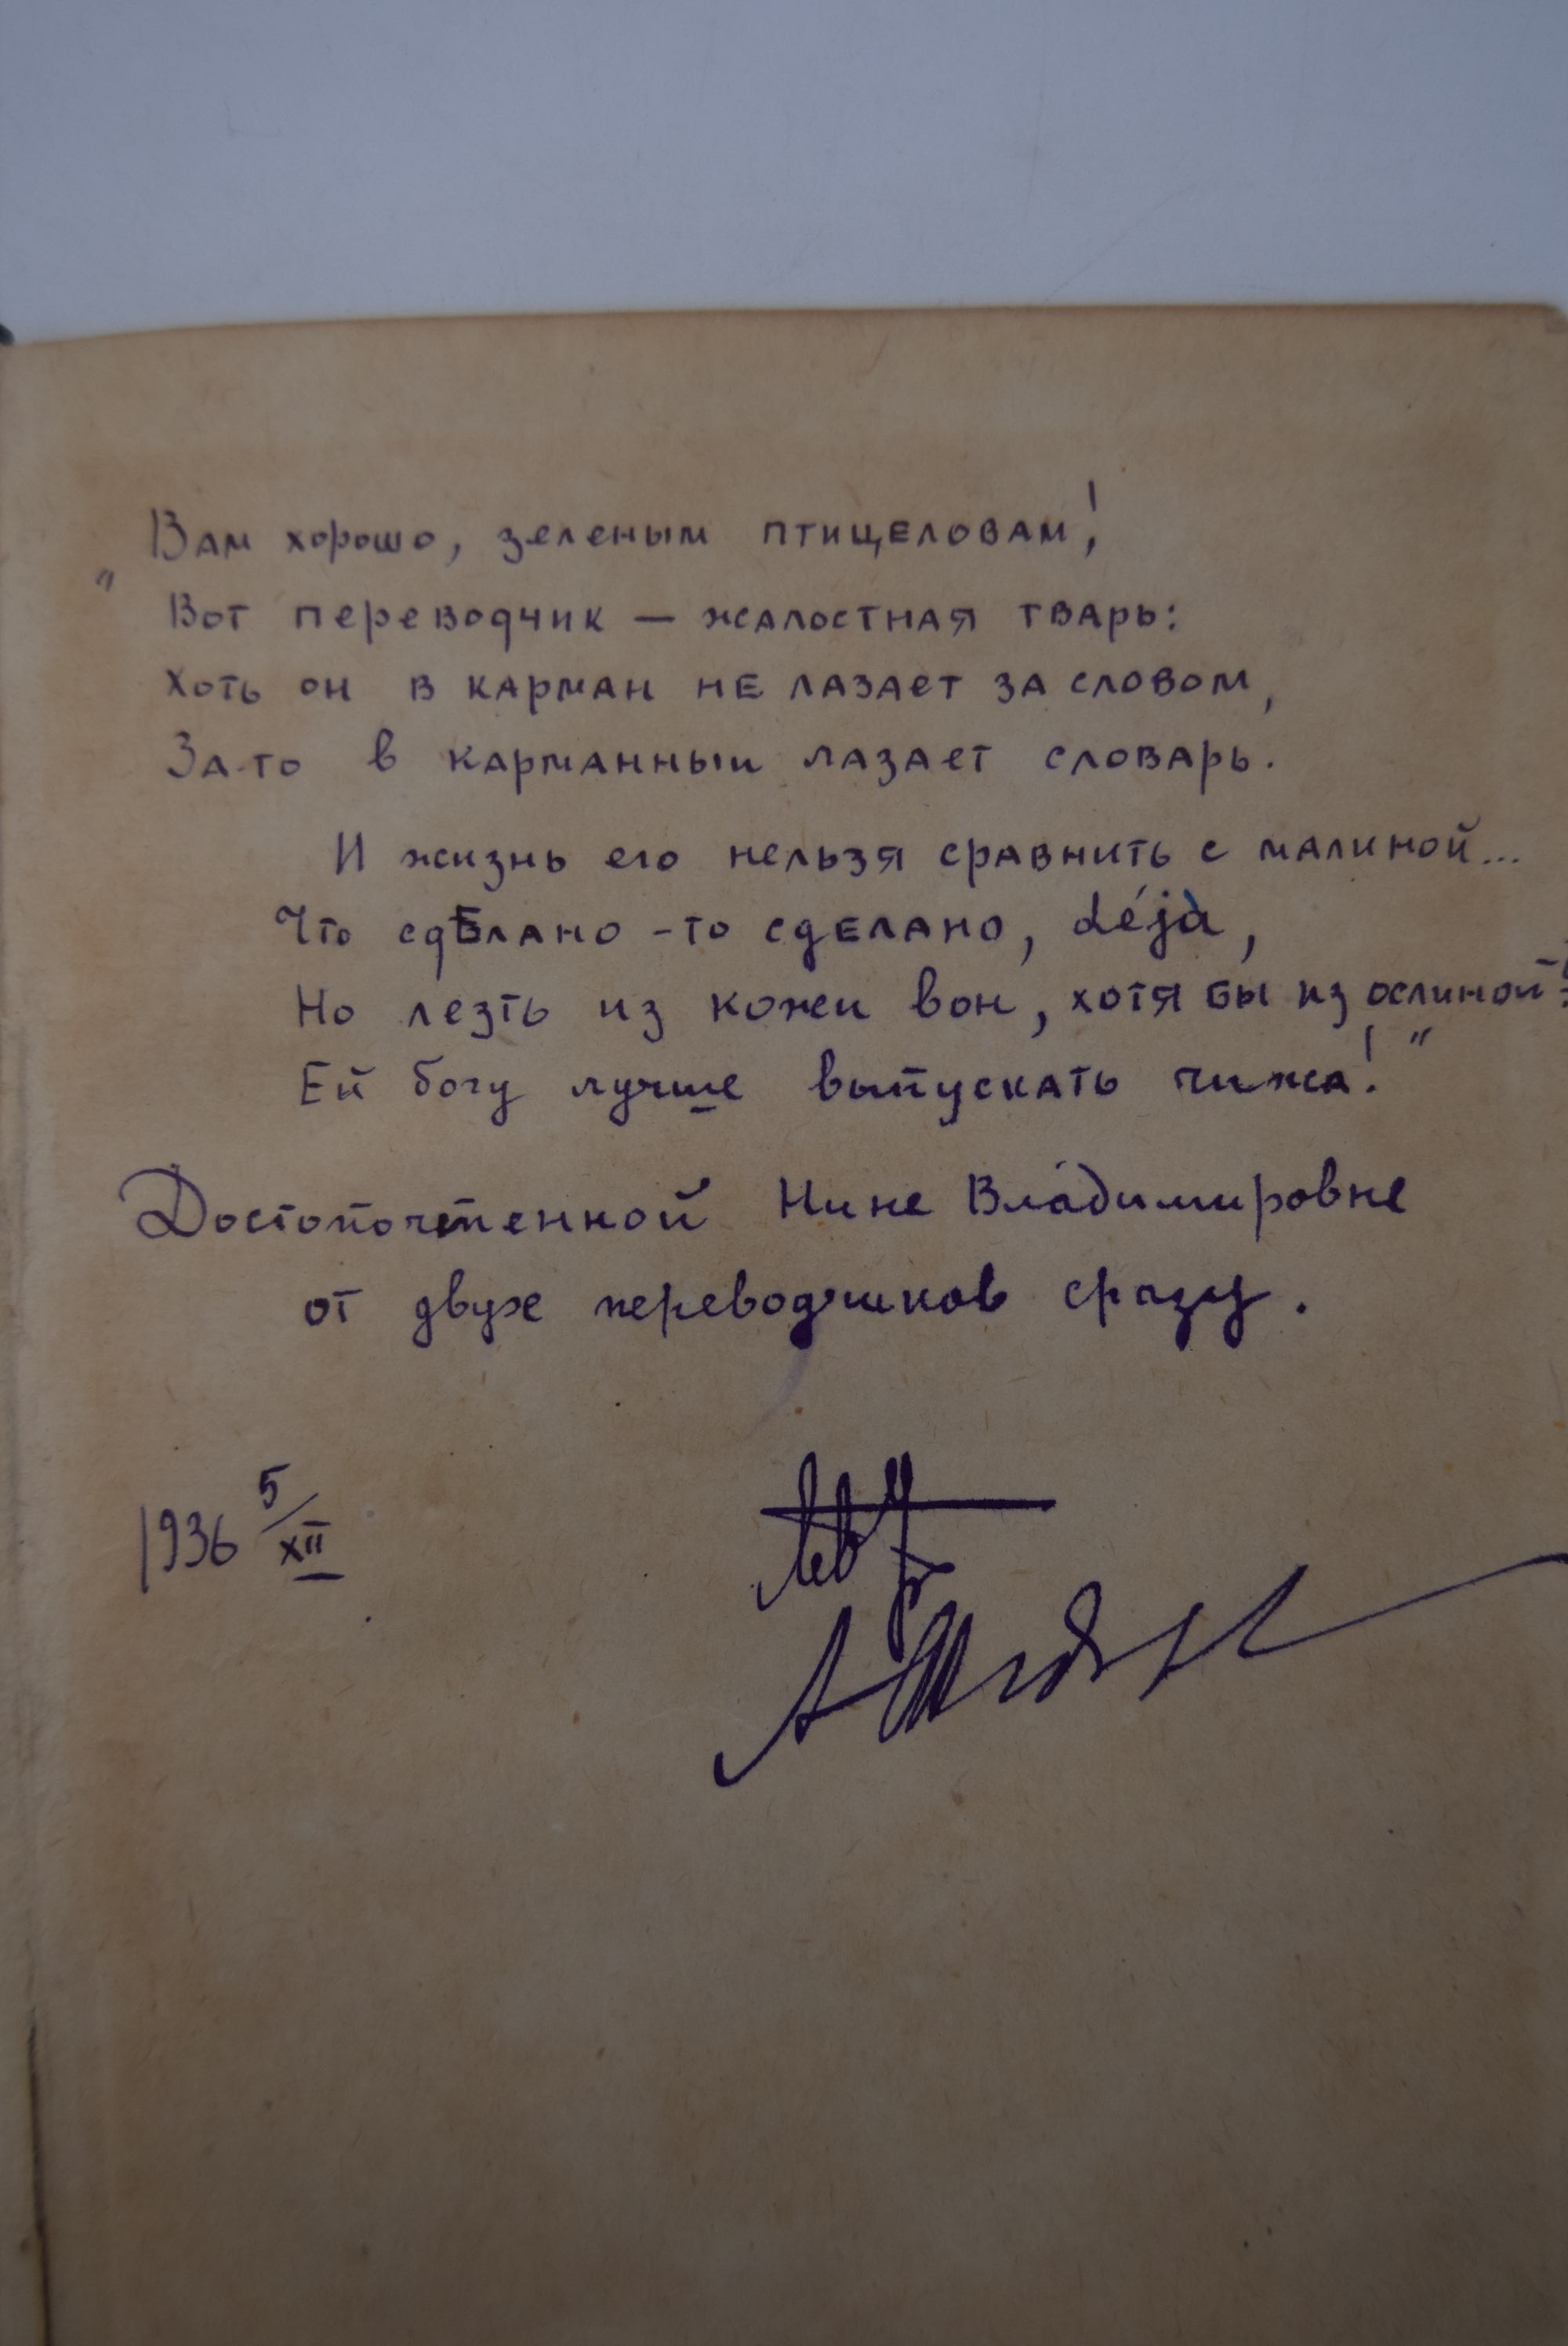 „Вам хорошо, зеленым птицеловам!
Вот переводчик — жалостная тварь:
Хоть он в карман не лазает за словом,
За-то в карманный лазает словарь.
И жизнь его нельзя сравнить с малиной...
Что сделано -то сделано, déjà,
Но лезть из кожи вон, хотя бы из ослиной
Ей богу лучше выпускать чижа!"
Достопочтенной Нине Владимировне
от двух переводчиков сразу.
1936 5/XII
Лев